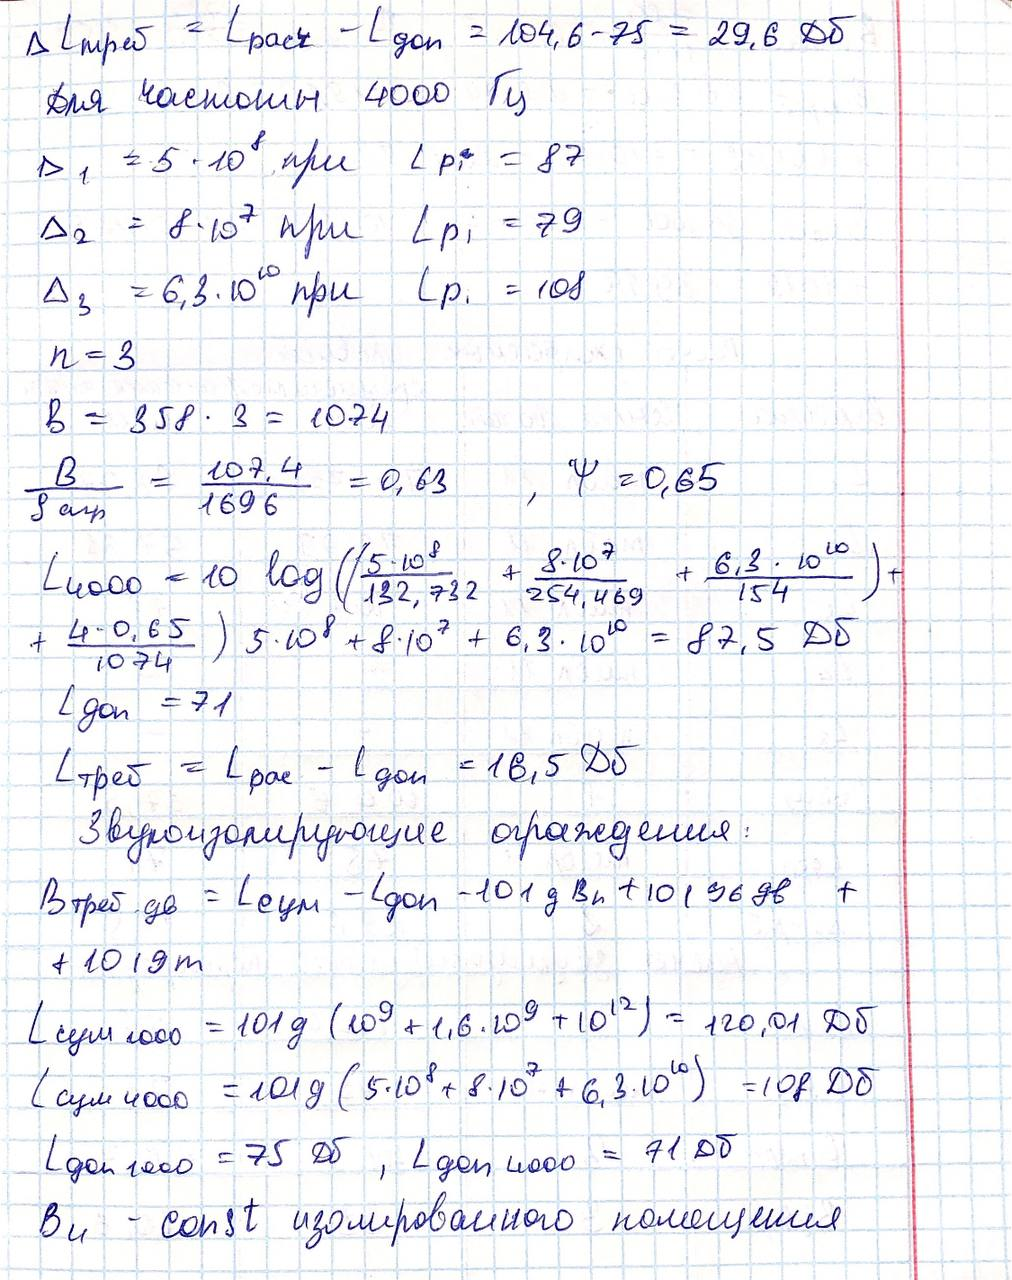 Δ Lтреб = Lрасч - Lдоп = 104,6-75 = 29,6 Дб
Для частоты 4000 Гц
Δ1 = 5 · 10^8 при Lpi = 87
Δ2 = 8·10^7 при Lpi = 79
Δ3 = 6,3·10^10 при Lpi = 108
n = 3
B = 358 · 3 = 1074
B/Sогр = 107,4/1696 = 0,63 , Ψ = 0,65
L4000 = 10 log((5·10^8/132,732 + 8·10^7/254,469 + 6,3·10^10/154) +
+ 4·0,65/1074) 5·10^8 + 8·10^7 + 6,3·10^10 = 87,5 Дб
Lдоп = 71
Lтреб = Lрас - Lдоп = 16,5 Дб
Звукоизолирующие ограждения:
Bтреб.дв = Lсум - Lдоп - 101g Bи + 101g6дв +
+ 101gm
Lсум1000 = 101g (10^9 + 1,6·10^9 + 10^12) = 120,01 Дб
Lсум4000 = 101g (5·10^8 + 8·10^7 + 6,3·10^10) = 108 Дб
Lдоп1000 = 75 Дб , Lдоп4000 = 71 Дб
Bи - const изолированного помещения